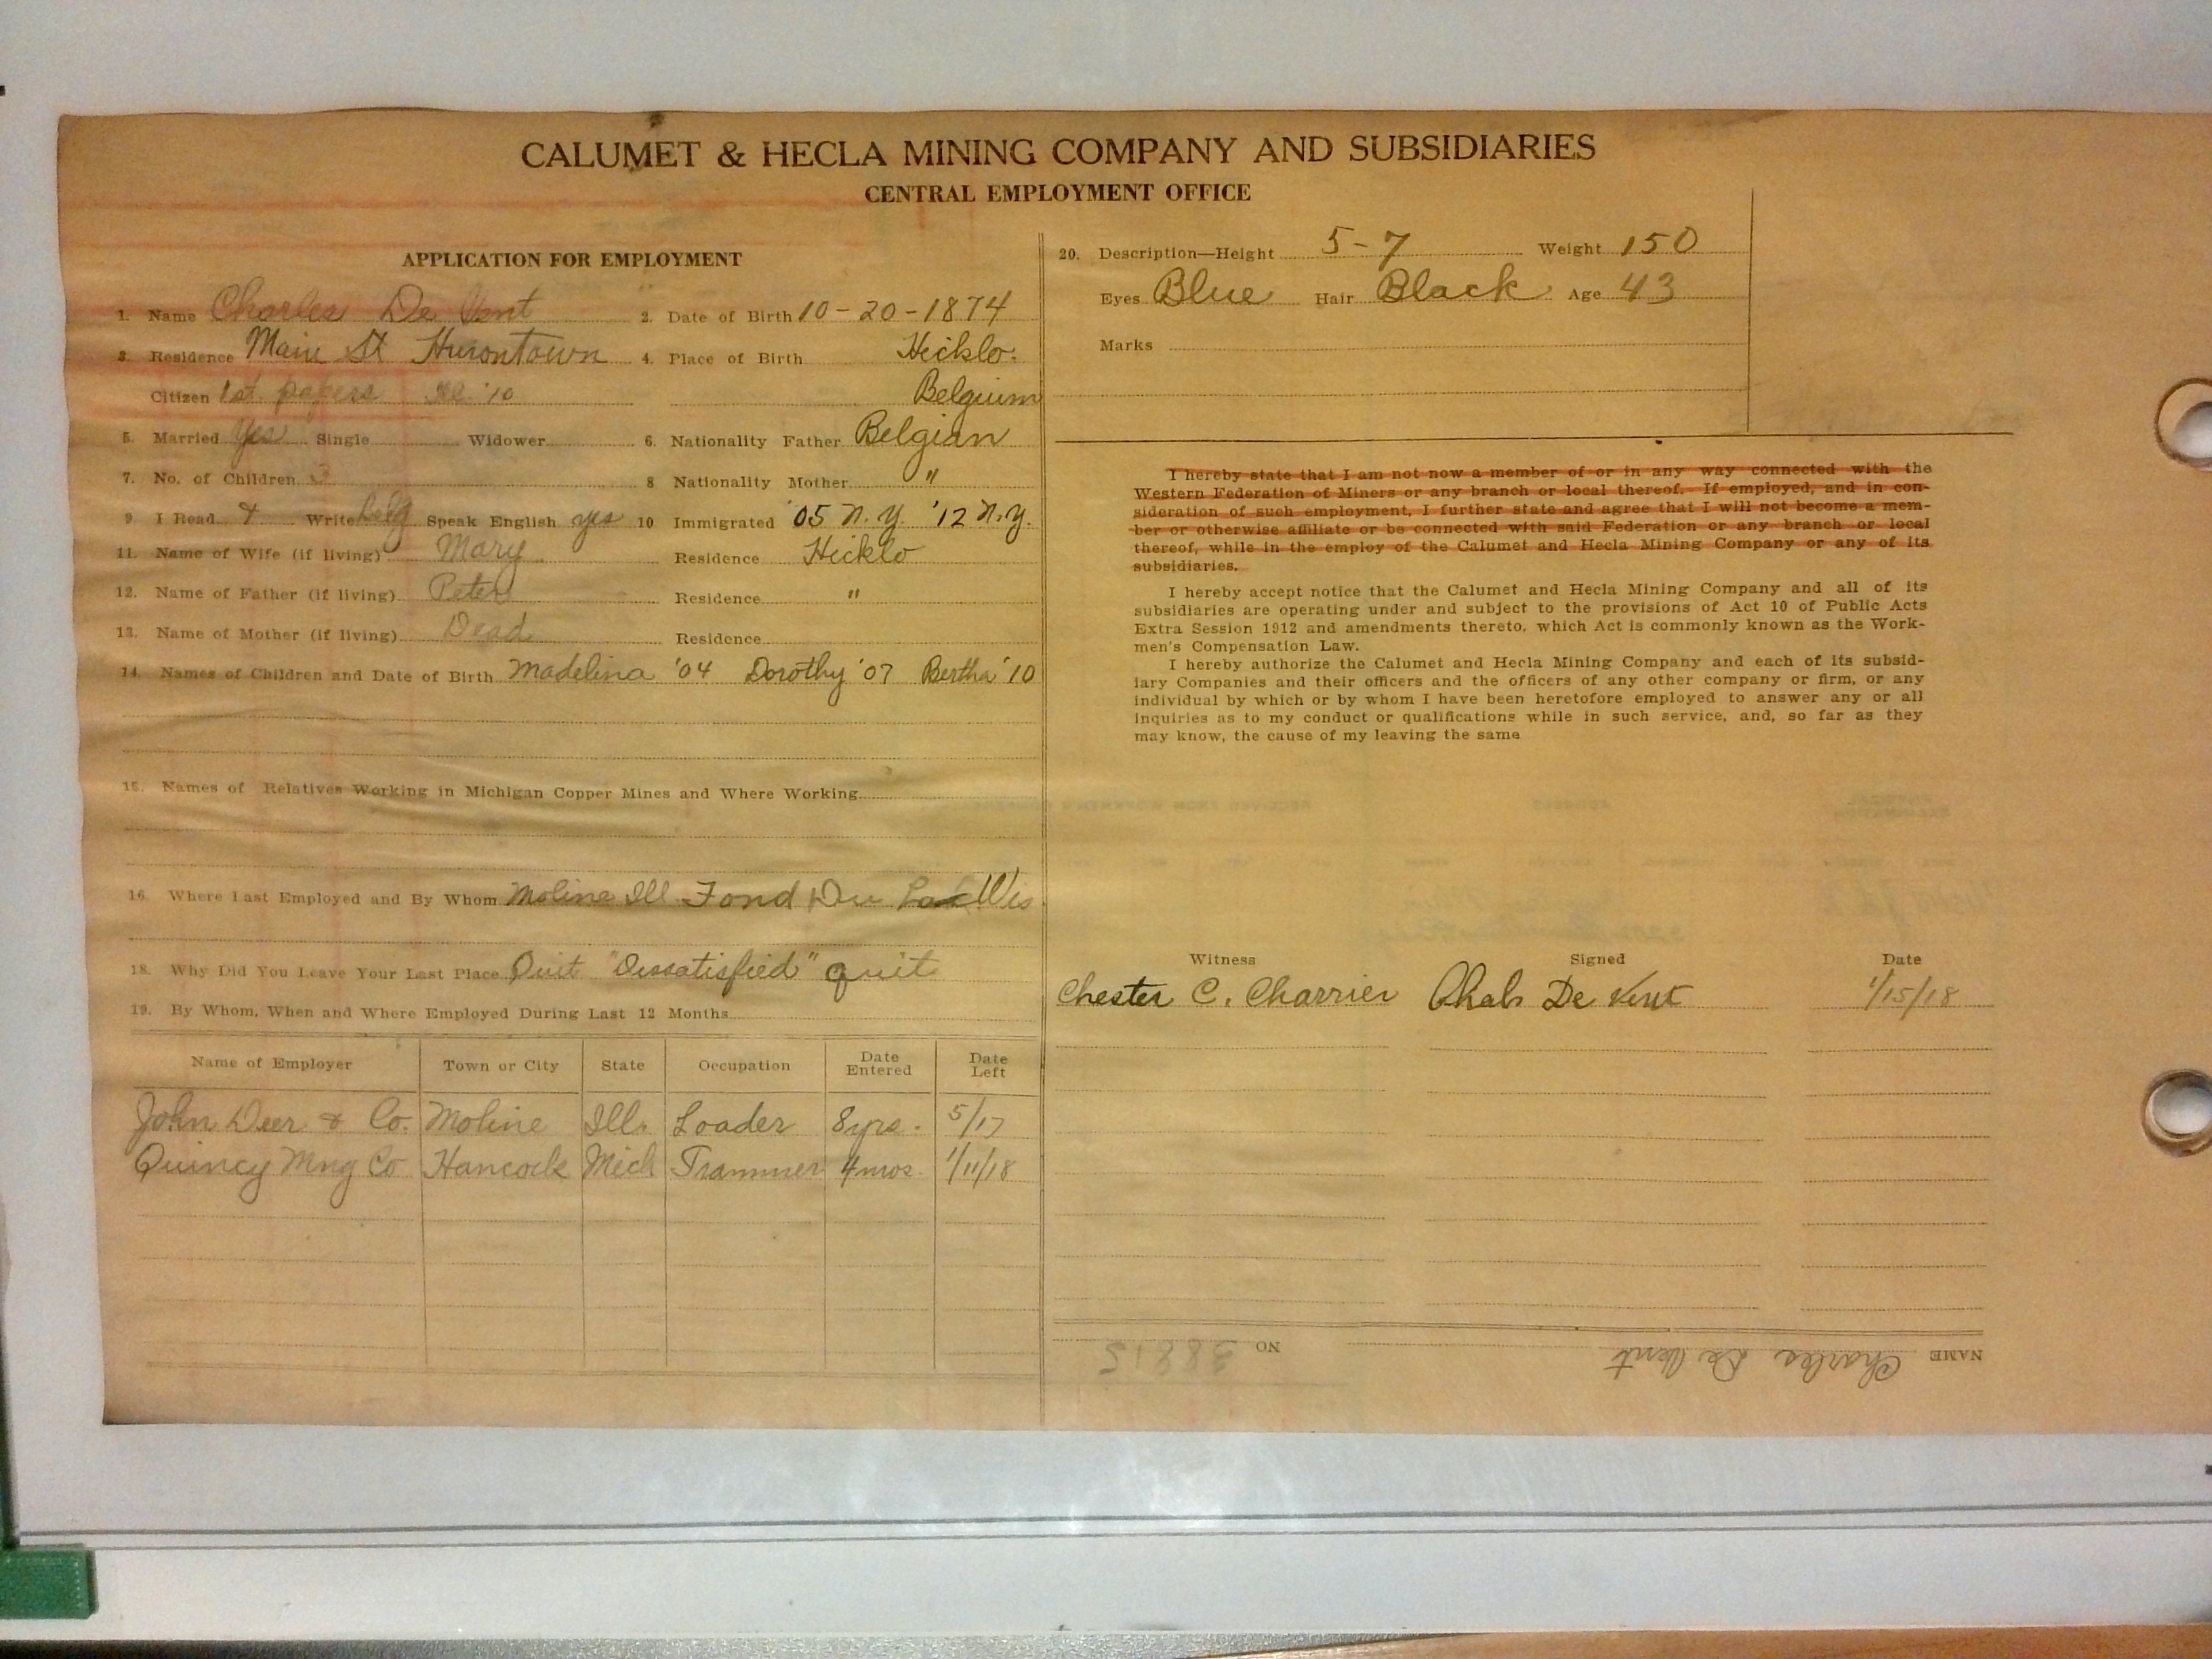 CALUMET & HECLA MINING COMPANY AND SUBSIDIARIES
CENTRAL EMPLOYMENT OFFICE
APPLICATION FOR EMPLOYMENT
1. Name Charles De Vent 2. Date of Birth 10-20-1874
3. Residence Main St Hurontown 4. Place of Birth Hicklo.
Citizen 1st papers Ill. '10 Belgium
5. Married Yes Single Widower 6. Nationality Father Belgian
7. No. of Children 3 8 Nationality Mother "
9 I Read & Write Belg Speak English yes 10 Immigrated '05 N.Y. '12 N.Y.
11. Name of Wife (if living) Mary Residence Hicklo
12. Name of Father (if living) Peter Residence "
13. Name of Mother (if living) Dead Residence
14. Names of Children and Date of Birth Madelina '04 Dorothy '07 Bertha '10
15. Names of Relatives Working in Michigan Copper Mines and Where Working
16. Where Last Employed and By Whom Moline Ill. Fond Du Lac Wis
18. Why Did You Leave Your Last Place Quit "Dissatisfied" quit
19. By Whom, When and Where Employed During Last 12 Months
Name of Employer Town or City State Occupation Date Entered Date Left
John Deer & Co. Moline Ill. Loader 8 yrs. 5/17
Quincy Mng Co Hancock Mich Trammer 4 mos. 1/11/18
20. Description—Height 5-7 Weight 150
Eyes Blue Hair Black Age 43
Marks
I hereby state that I am not now a member of or in any way connected with the
Western Federation of Miners or any branch or local thereof. If employed, and in con-
sideration of such employment, I further state and agree that I will not become a mem-
ber or otherwise affiliate or be connected with said Federation or any branch or local
thereof, while in the employ of the Calumet and Hecla Mining Company or any of its
subsidiaries.
I hereby accept notice that the Calumet and Hecla Mining Company and all of its
subsidiaries are operating under and subject to the provisions of Act 10 of Public Acts
Extra Session 1912 and amendments thereto, which Act is commonly known as the Work-
men's Compensation Law.
I hereby authorize the Calumet and Hecla Mining Company and each of its subsid-
iary Companies and their officers and the officers of any other company or firm, or any
individual by which or by whom I have been heretofore employed to answer any or all
inquiries as to my conduct or qualifications while in such service, and, so far as they
may know, the cause of my leaving the same
Witness Signed Date
Chester C. Charrier Chas. De Vent 1/15/18
NAME Charles De Vent NO 38815